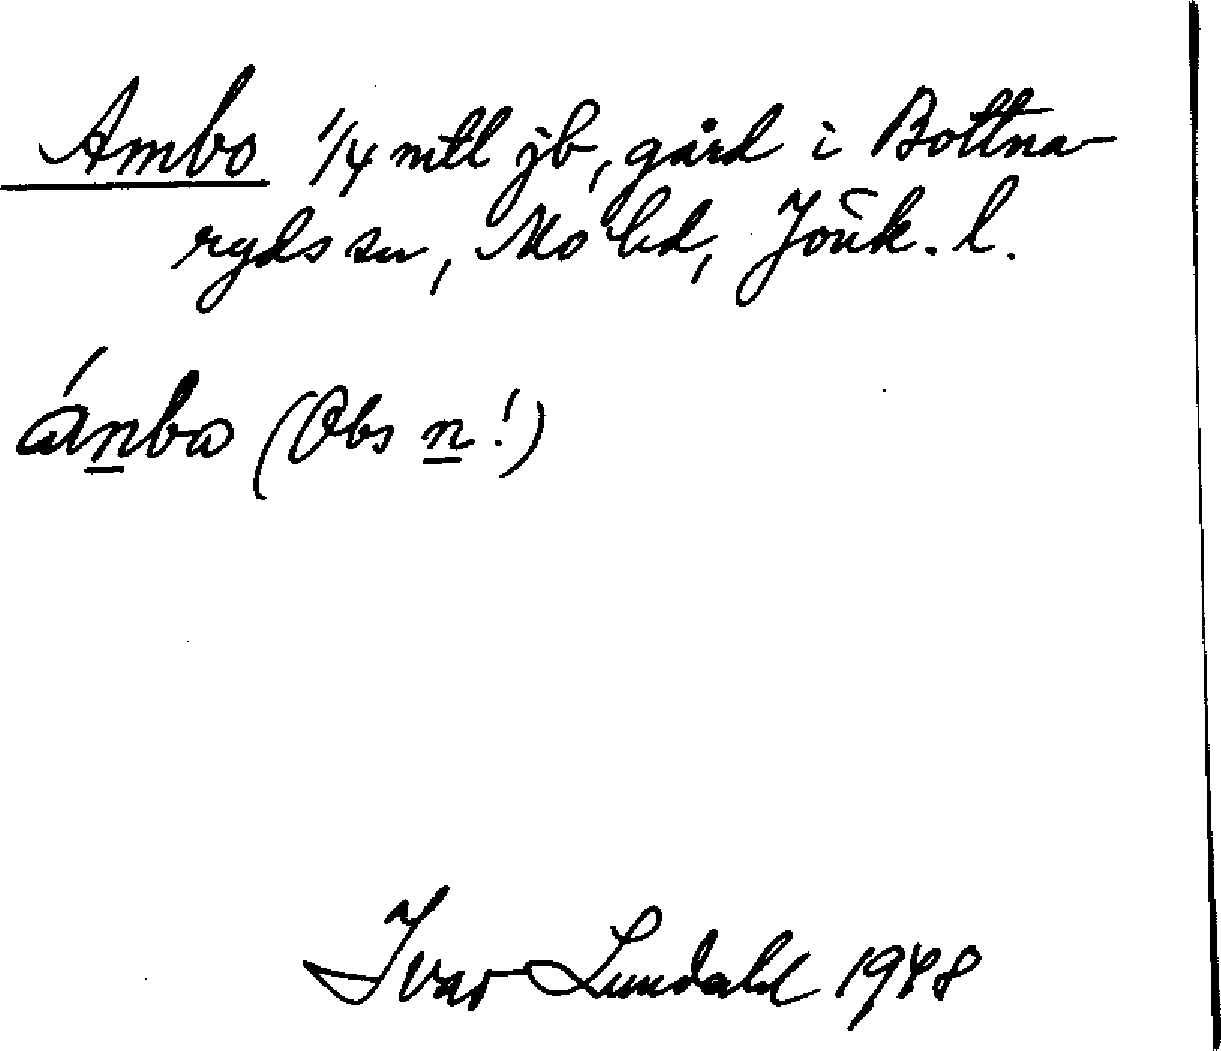 Ambo 1/4 mtl jb, gård i Bottna-
ryds sn, Mo hd, Jönk. l.
ánbω (Obs n!)
Ivar Lundahl 1948